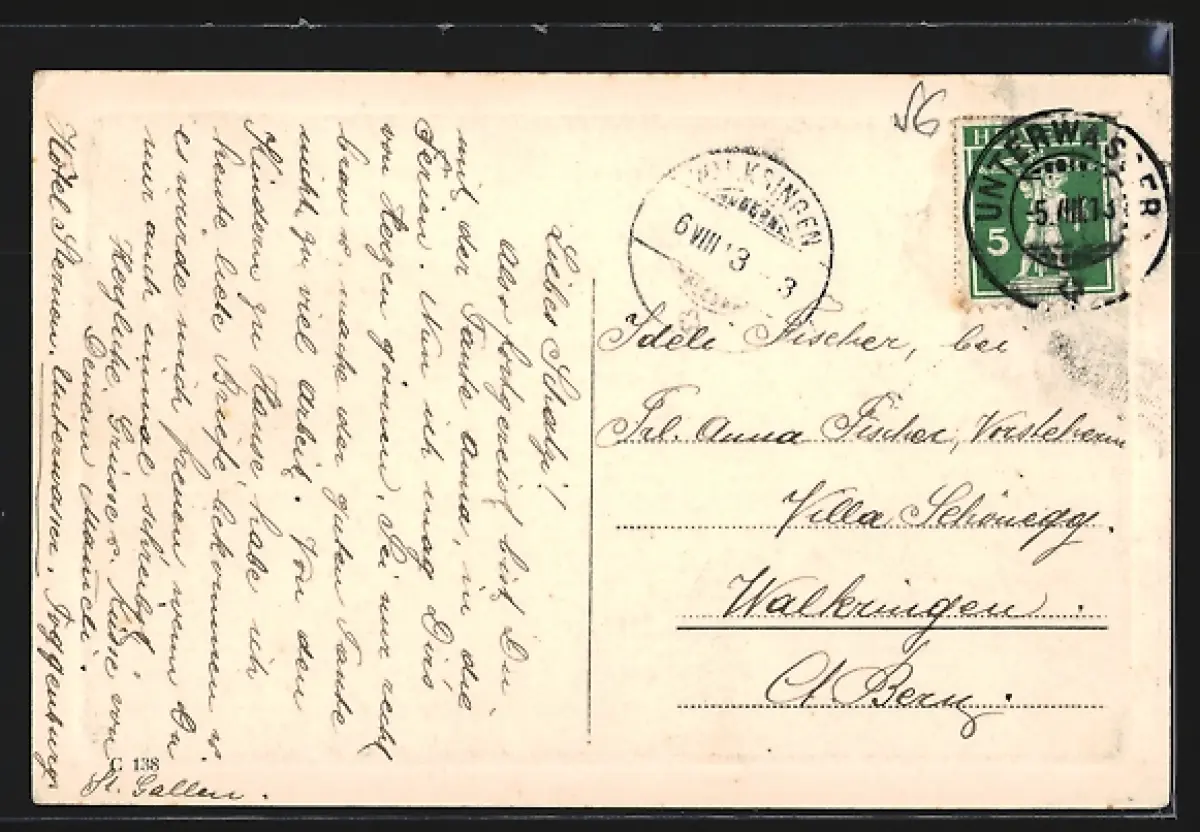 Liebes Schatzi!
Also fortgereist bist Du
mit der Tante Anna, in die
Ferien. Nun ich mag Dirs
von Herzen gönnen. Sei nur recht
brav u. mache der guten Tante
nicht zu viel Arbeit. Von den
Kindern zu Hause habe ich
heute liebe Briefe bekommen u.
es würde mich freuen wenn Du
mir auch einmal schreibst.
Herzliche Grüsse u. Küsse von
Deinem
Hotel Sternen. Unterwasser. Toggenburg.
St. Gallen.
C 138
56
HELVETIA
5
UNTERWASSER
-5.VIII.13
WALKRINGEN
(BERN)
6 VIII 13 3
Ideli Fischer, bei
Frl. Anna Fischer, Vorsteherin
Villa Schönegg.
Walkringen.
Ct Bern.